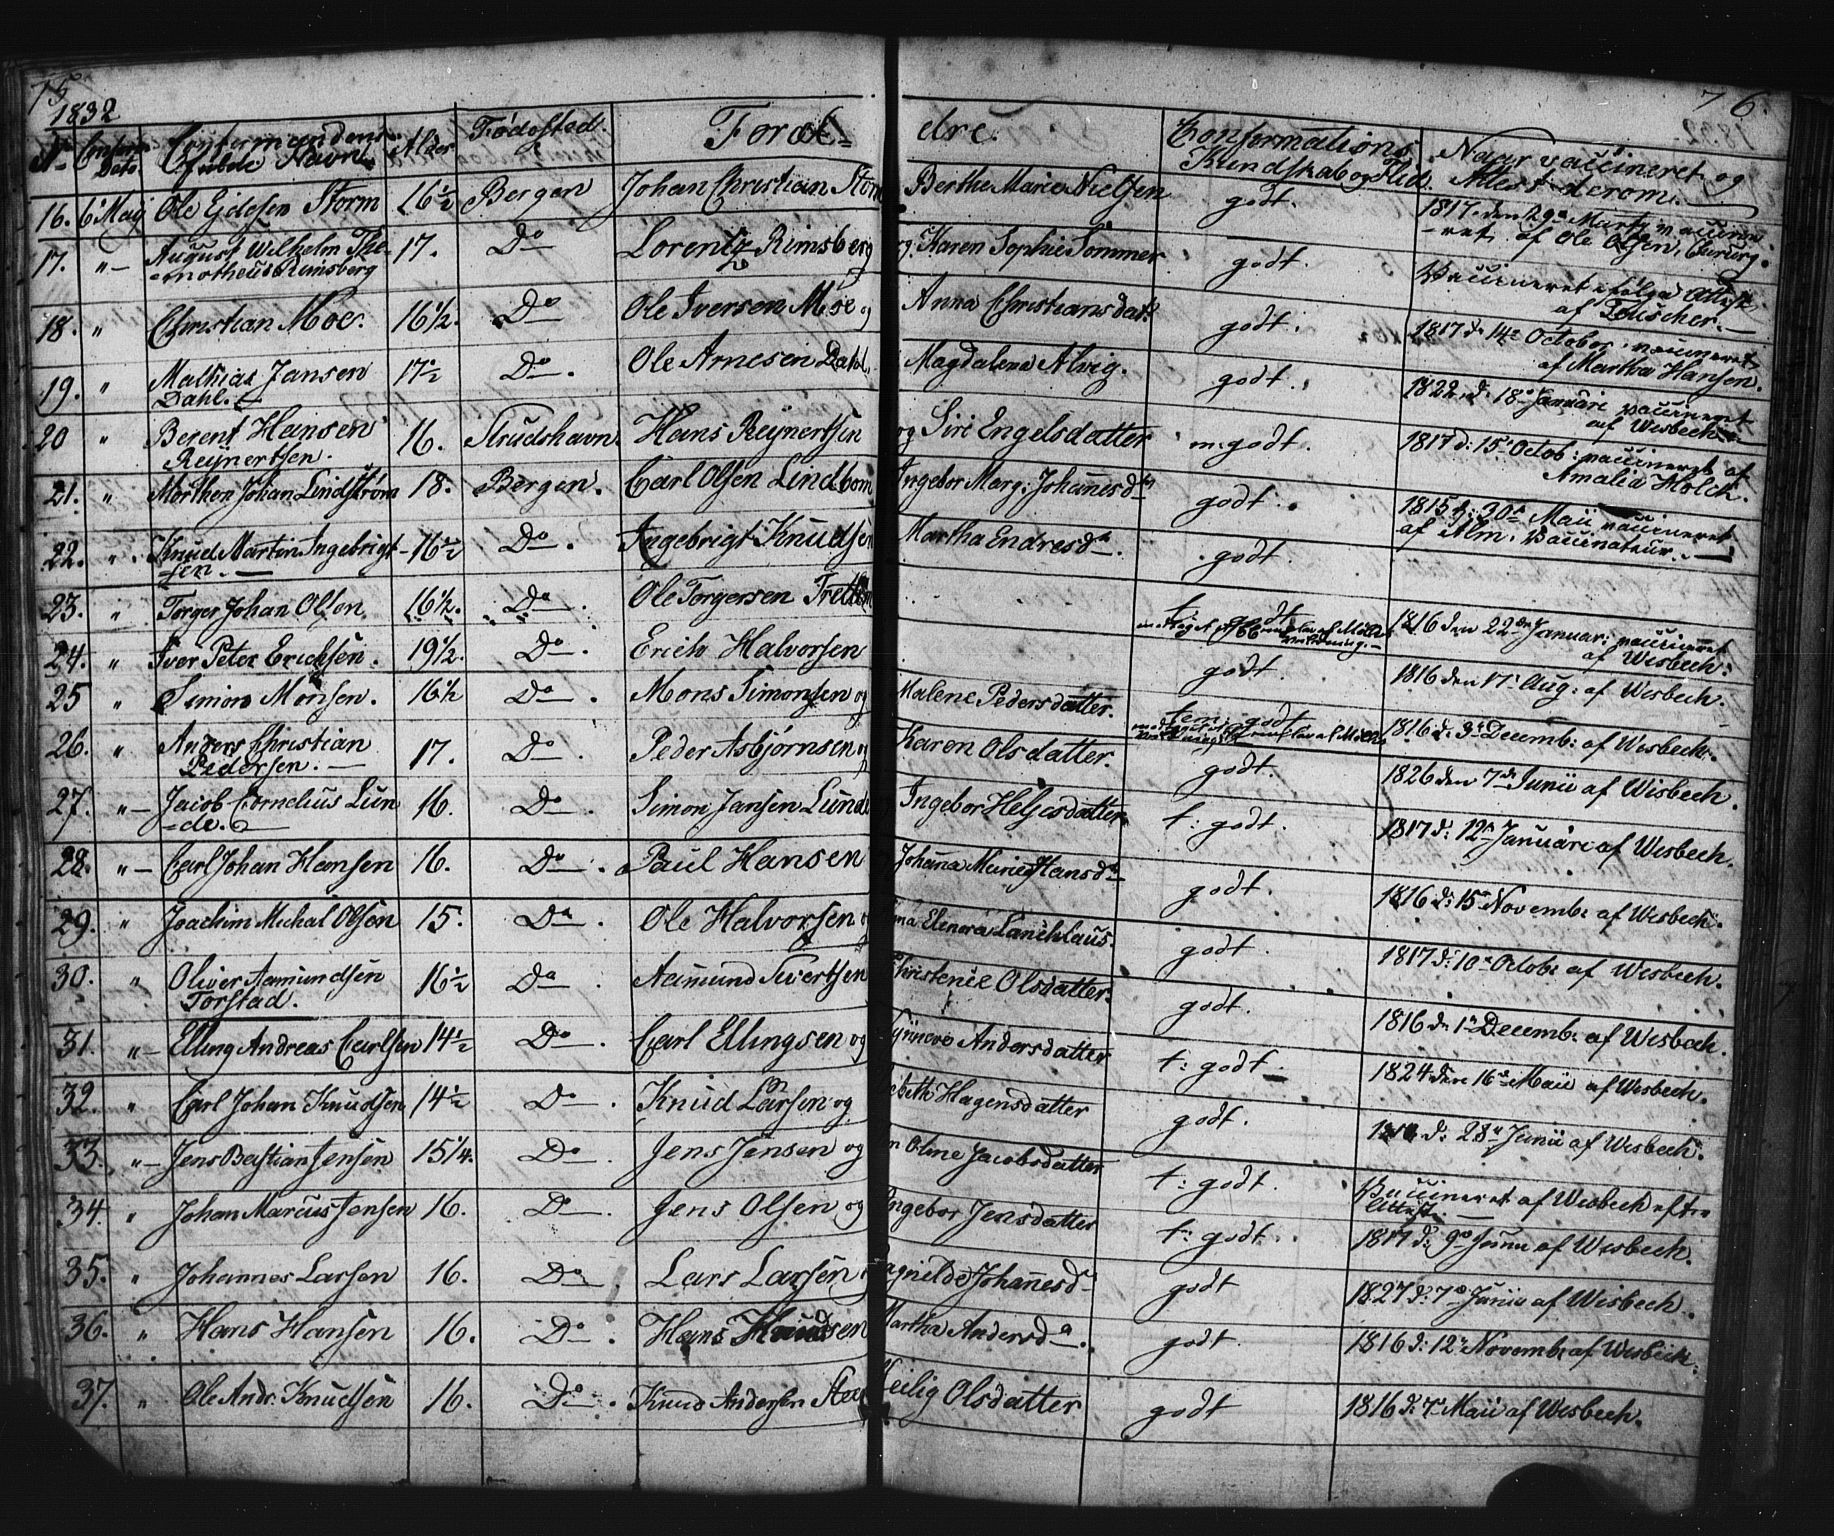 75
1832
76.
No Confirm: Dato. Confirmandens fulde Navn. Alder Fødested. Foræl- dre. Confirmations Kundskab og Flid. Naar vaccineret og Attest derom.
16. 6 Maij Ole Edesen Storm 16½ Bergen Johan Christian Storm Berthe Marie Nielsen godt. 1817. den 29a Martz vaccine-
-ret af Ole Olsen, Chirurg.
17. " August Wilhelm The- 17. Do Lorentz Rimsberg og Karen Sophie Sommer godt. Vaccineret ifølge Attest
-motheus Rimsberg af Teuscher.
18. " Christian Moe. 16½. Do Ole Iversen Moe og Anna Christiansdatr. godt. 1817 d: 14e October vaccineret
af Martha Hansen.
19. " Mathias Jansen 17½ Do. Ole Arnesen Dahl. Magdalena Alvig. godt. 1822. d. 18e Januari vaccineret
Dahl. af Wisbech.
20 " Berent Hansen 16. Strudshavn Hans Reijnertsen og Siri Engelsdatter m: godt. 1817 d: 15e Octob: vaccineret af
Reijnertsen. Amalia Holck.
21. " Morthen Johan Lindstrøm 18. Bergen. Carl Olsen Lindbom Ingebor Marg: Johannesdtr godt. 1815 d: 30te Maii vaccineret
af Alm, Vaccinateur.
22. " Knud Martin Ingebrigt- 16½ Do. Ingebrigt Knudsen Martha Endresda. godt.
sen.
23. " Torger Johan Olsen 16½. Do. Ole Torgersen t: godt 1816 den 22de Januar: vaccineret
af Wisbech.
24. " Iver Peter Erichsen. 19½. Do. Erich Halvorsen godt. 1816 den 17e Aug: af Wisbech.
25 " Simon Monsen. 16½ Do. Mons Simonsen og Malene Pedersdatter. tem: godt 1816 d: 3die Decemb: af Wisbech.
26. " Anders Christian 17. Do. Peder Asbjørnsen og Karen Olsdatter. godt. 1826 den 7de Junii af Wisbech.
Pedersen.
27. " Jacob Cornelius Lun 16. Do. Simon Jansen Lunde Ingebor Heljesdatter t: godt. 1817 d: 12te Januari af Wisbech.
-de.
28. " Carl Johan Hansen 16. Do. Paul Hansen Johana Marie Hansda godt. 1816 d: 15e Novemb: af Wisbech.
29. " Joachim Michal Olsen 15. Do. Ole Halvorsen Elenora Lanchlaus. godt. 1817 d: 10e Octob: af Wisbech.
30. " Oliver Aamundsen 16½ Do. Aamund Sivertsen Christense Olsdatter. godt. 1816 d: 1e Decemb: af Wisbech.
Torstad.
31. " Elling Andreas Carlsen 14½ Do. Carl Ellingsen og Synneve Andersdatter t: godt. 1824 den 16de Maii af Wisbech.
32. " Carl Johan Knudsen 14½ Do. Knud Larsen og ebeth Hagensdatter godt. d: 28e Junii af Wisbech.
33. " Jens Bastian Jensen 15¼. Do. Jens Jensen og n Oline Jacobsdatter t: godt. Vaccineret af Wisbech efter
Attest.
34. " Johan Marcus Jensen 16. Do. Jens Olsen og Ingebor Jensdatter t: godt. 1817 d: 9e Junii af Wisbech.
35. " Johannes Larsen 16. Do. Lars Larsen Ragnilde Johannesd godt 1827 d: 7de Junii af Wisbech.
36. " Hans Hansen 16. Do. Hans Knudsen Martha Andersda. godt. 1816 d: 12e Novemb: af Wisbech.
37. " Ole Andr: Knudsen 16. Do. Knud Andersen Sto Zeilig Olsdatter godt 1816 d: 7e Maii af Wisbech.